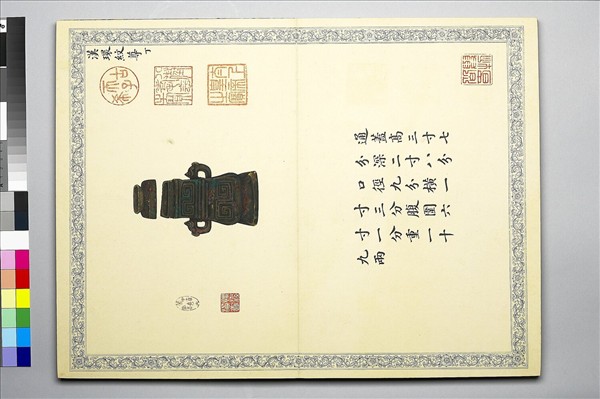 漢環紋尊
丁
通蓋高三寸七
分深二寸八分
口徑九分橫一
寸三分腹圍六
寸一分重一十
九兩